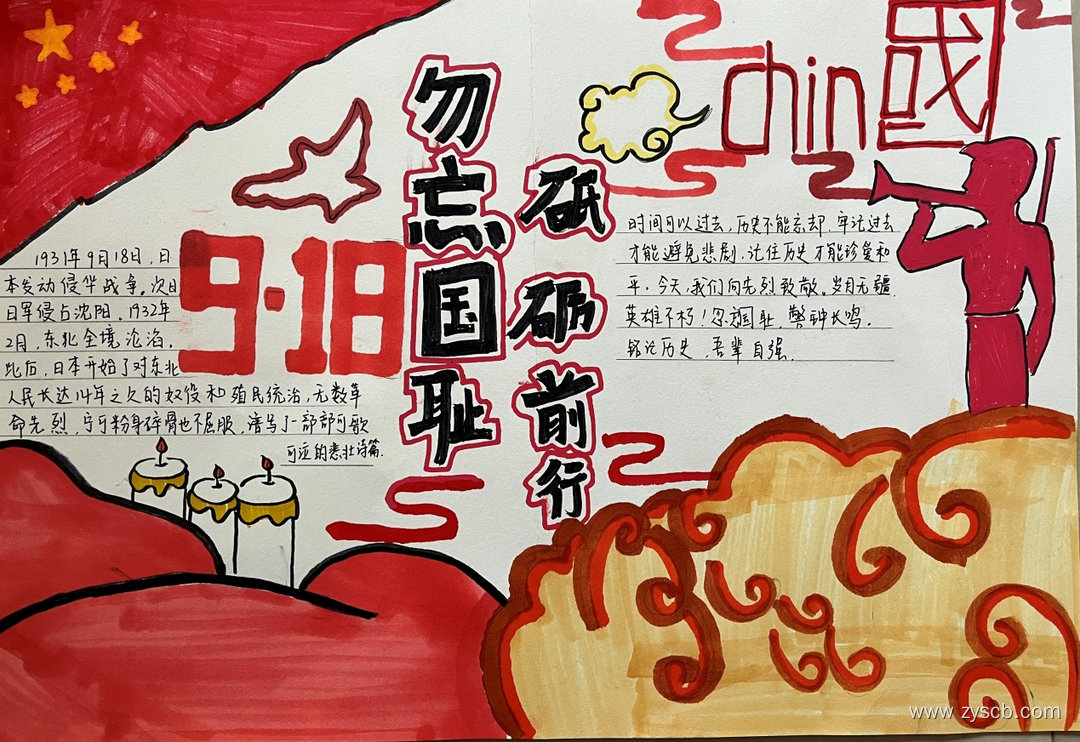 勿忘国耻
砥砺前行
chin國
9·18
1931年9月18日,日
本发动侵华战争。次日
日军侵占沈阳。1932年
2月,东北全境沦陷。
此后,日本开始了对东北
人民长达14年之久的奴役和殖民统治,无数革
命先烈,宁可粉身碎骨也不屈服,谱写了一部部可歌
可泣的悲壮诗篇.
时间可以过去,历史不能忘却.牢记过去
才能避免悲剧,记住历史才能珍爱和
平.今天,我们向先烈致敬。岁月无疆
英雄不朽!忽忘国耻,警钟长鸣.
铭记历史,吾辈自强.
www.zyscb.com